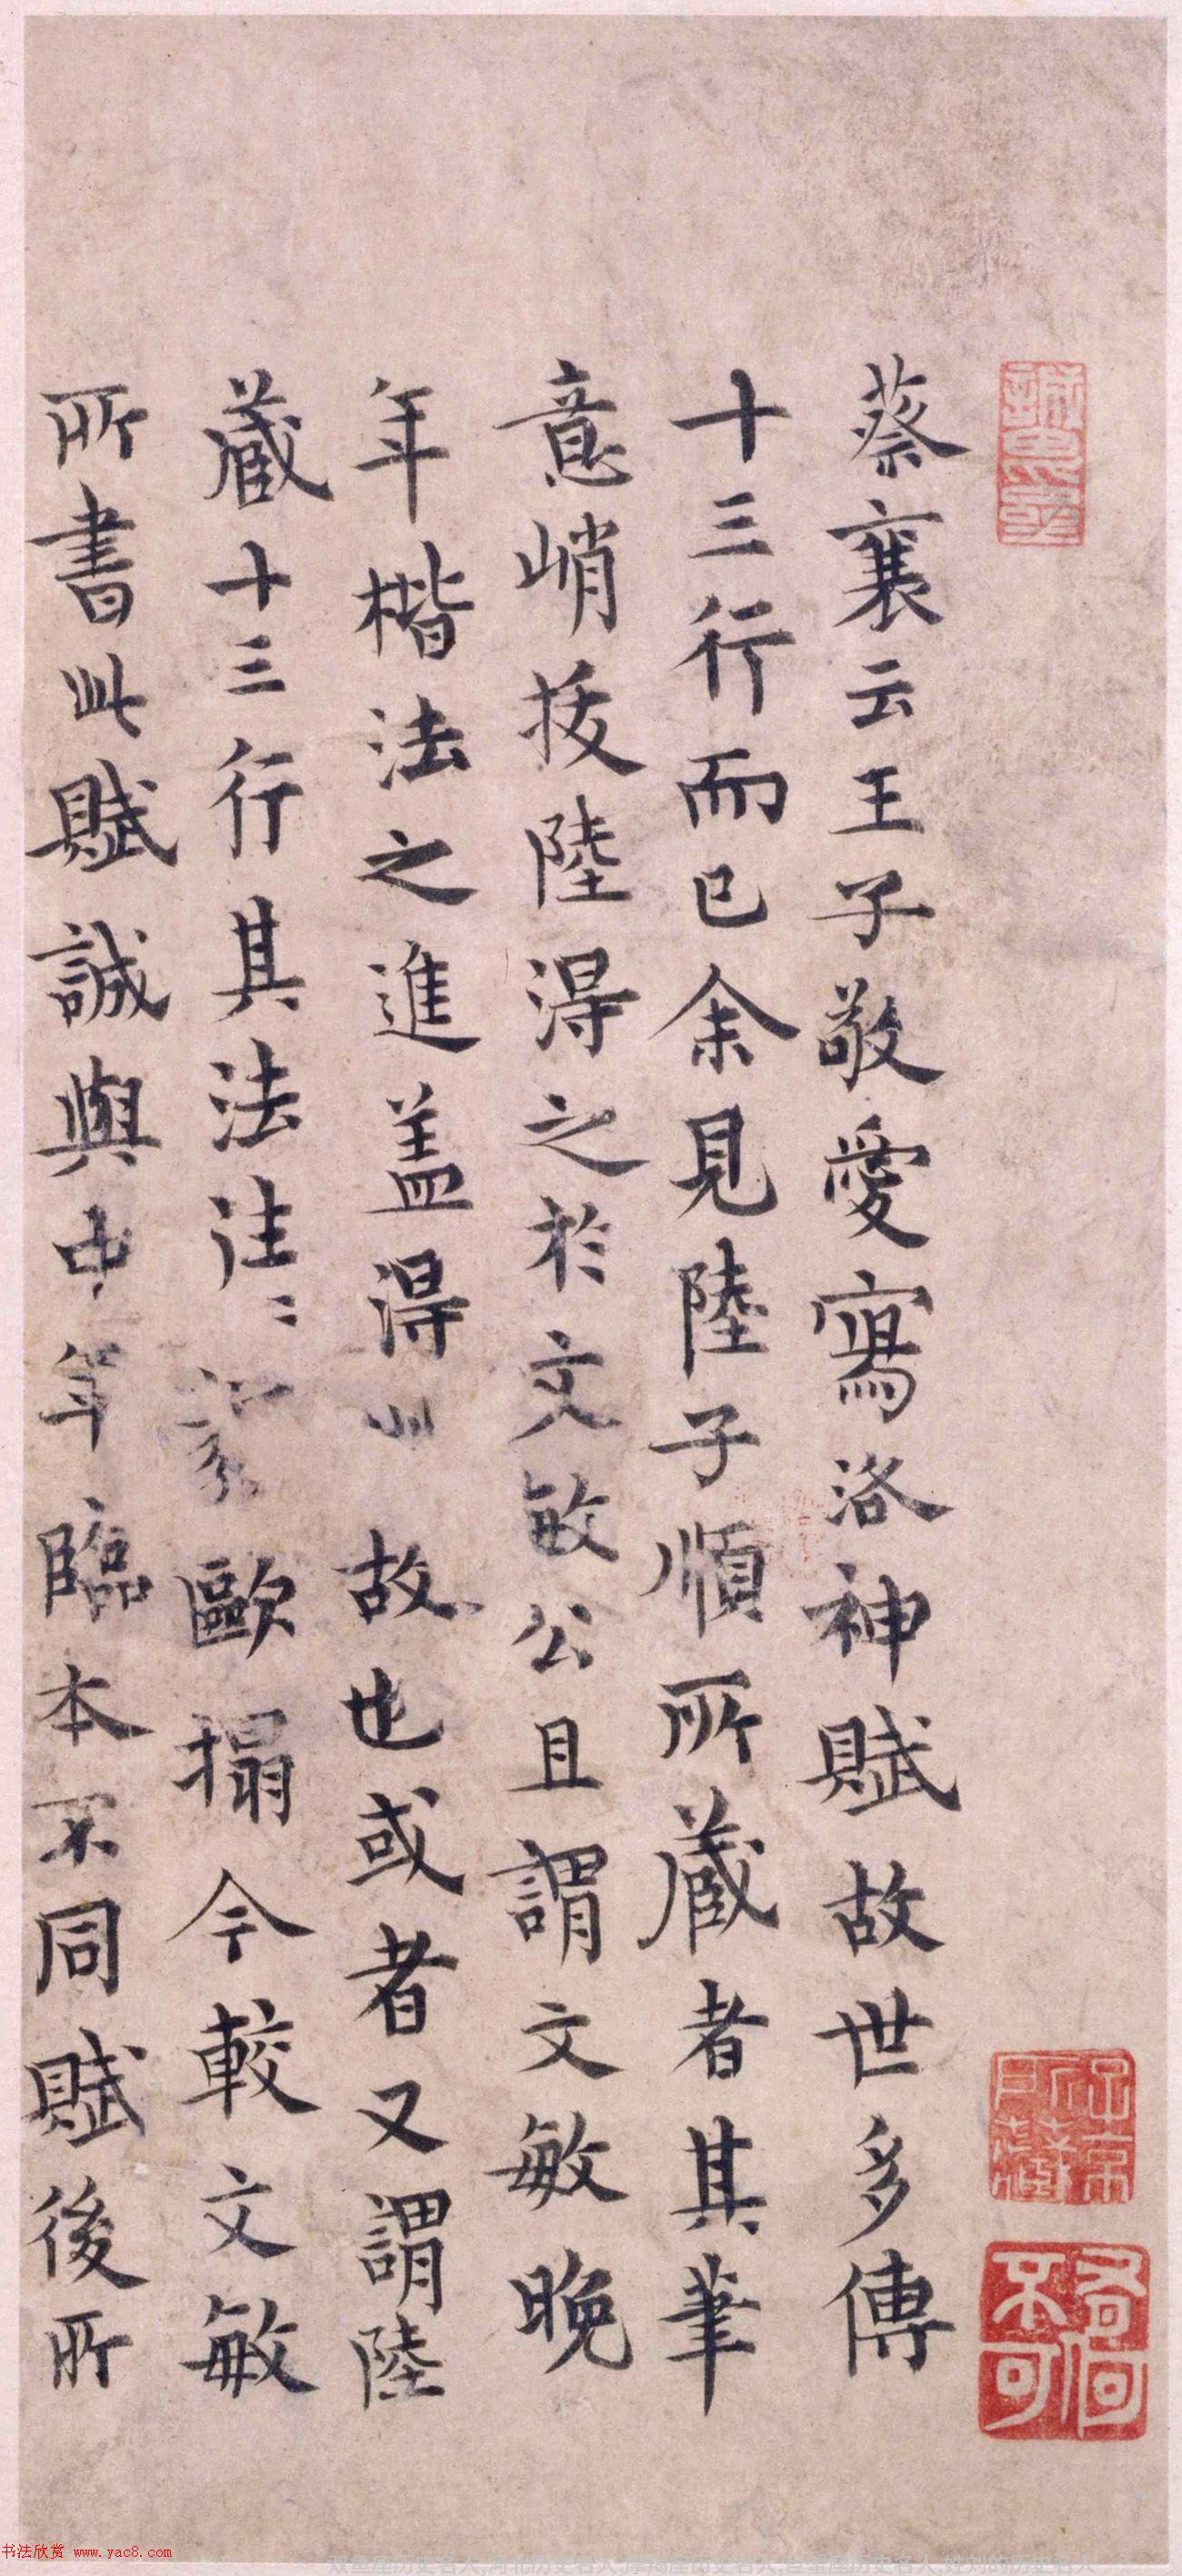 蔡襄云王子敬愛寫洛神賦故世多傳
十三行而已余見陸子順所藏者其筆
意峭拔陸得之於文敏公且謂文敏晚
年楷法之進蓋得此故也或者又謂陸
藏十三行其法往〻歐搨今較文敏
所書此賦誠與中年臨本不同賦後所
書法欣赏 www.yac8.com